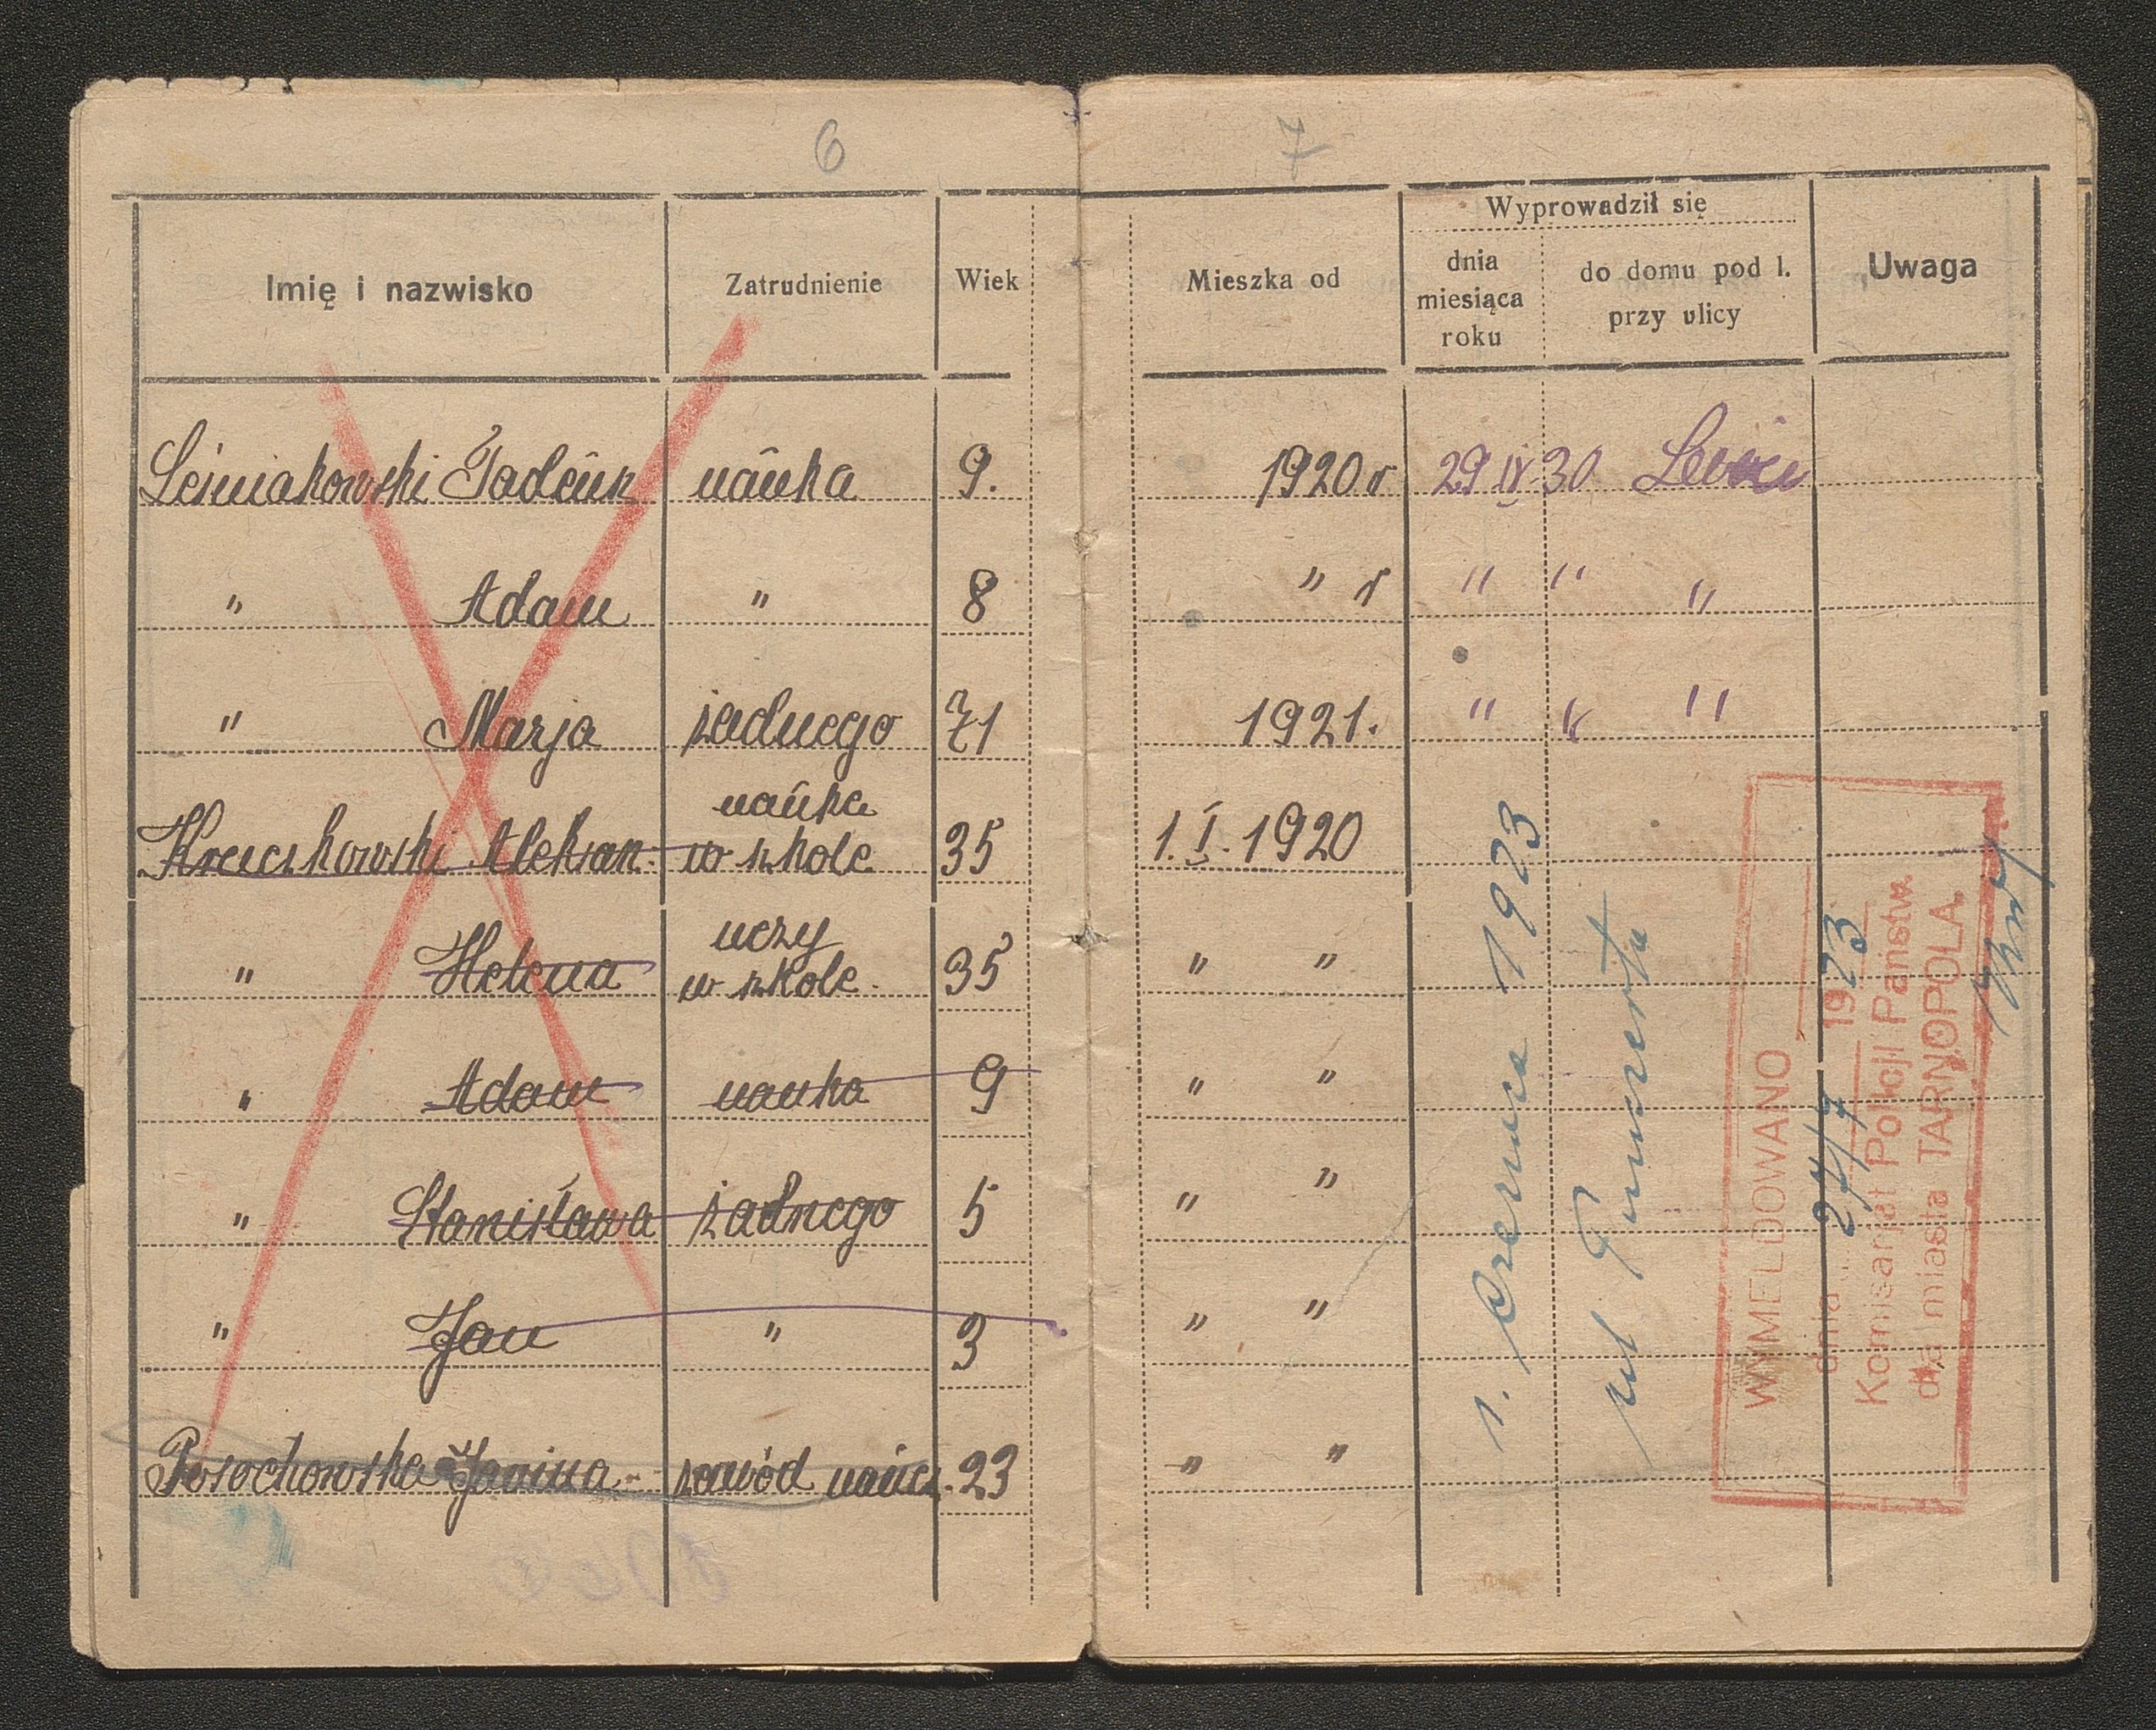 6
7
Imię i nazwisko Zatrudnienie Wiek Mieszka od Wyprowadził się Uwaga
dnia miesiąca roku do domu pod l. przy ulicy
Leśniakowski Tadeusz nauka 9. 1920 r 29 IV 30
" Adam " 8 " r " " "
" Marja żadnego 71 1921. " " "
Kruczkowski Aleksan. nauka w szkole 35 1. I. 1920
" Helena uczy w szkole. 35 " "
" Adam nauka 9 " "
" Stanisława żadnego 5 " "
" Jan " 3 " "
Janina zawód naucz. 23 " "
1. Czerwca 1923
ul
WYMELDOWANO
dnia 24/7 1923
Komisarjat Policji Państw.
dla miasta TARNOPOLA